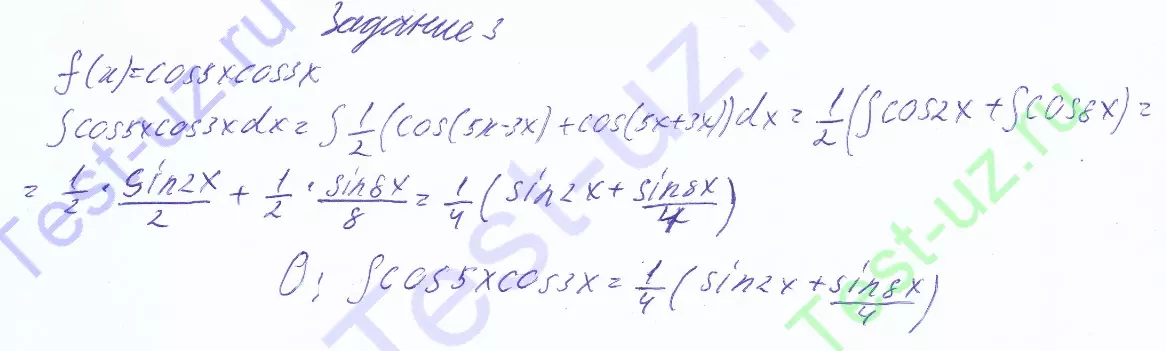 Задание 3
f(x)=cos5xcos3x
∫cos5xcos3xdx = ∫ 1/2 (cos(5x-3x)+cos(5x+3x))dx = 1/2 (∫cos2x + ∫cos8x) =
= 1/2 · sin2x/2 + 1/2 · sin8x/8 = 1/4 (sin2x + sin8x/4)
О: ∫cos5xcos3x = 1/4 (sin2x + sin8x/4)
Test-uz.ru
Test-uz.ru
Test-uz.ru